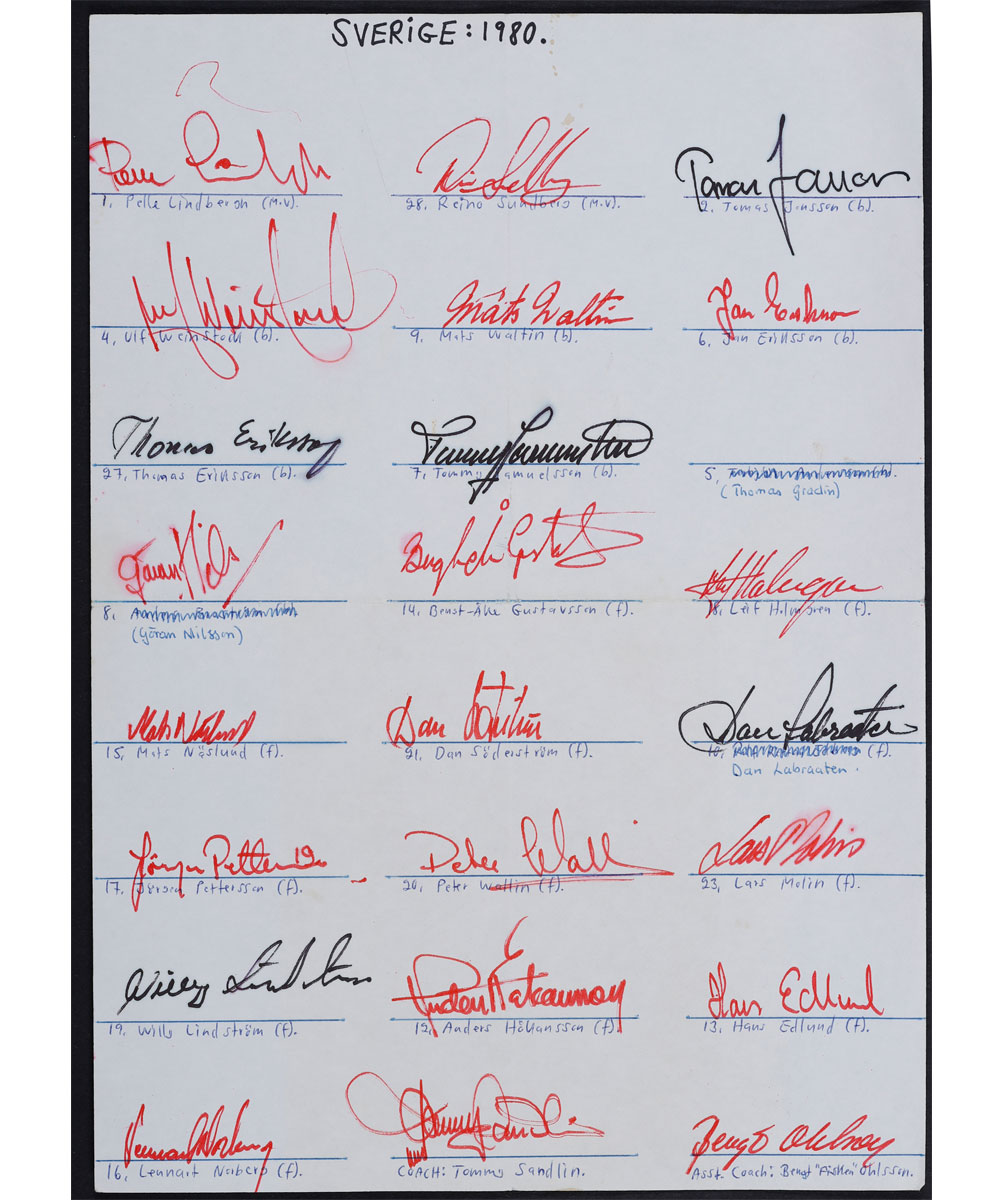 SVERIGE: 1980.
Pelle Lindbergh
Tomas Jonsson
1, Pelle Lindbergh (M.V).
28, Reino Sundberg (M.V).
2, Tomas Jonsson (b).
Ulf Weinstock
Mats Waltin
Jan Eriksson
4, Ulf Weinstock (b).
9, Mats Waltin (b).
6, Jan Eriksson (b).
Thomas Eriksson
Tommy Samuelsson
27, Thomas Eriksson (b).
7, Tommy Samuelsson (b).
5,
(Thomas Gradin)
Bengt-Åke Gustafsson
Leif Holmgren
8,
(Göran Nilsson)
14, Bengt-Åke Gustavsson (f).
18, Leif Holmgren (f).
Mats Näslund
Dan Söderström
Dan Labraaten
15, Mats Näslund (f).
21, Dan Söderström (f).
10, (f).
Dan Labraaten.
Jörgen Pettersson
Peter Wallin
Lars Molin
17, Jörgen Pettersson (f).
20, Peter Wallin (f).
23, Lars Molin (f).
Willy Lindström
Anders Håkansson
Hans Edlund
19, Willy Lindström (f).
12, Anders Håkansson (f).
13, Hans Edlund (f).
Lennart Norberg
Tommy Sandlin
Bengt Ohlson
16, Lennart Norberg (f).
COACH: Tommy Sandlin.
Asst. Coach: Bengt "Fisken" Ohlsson.